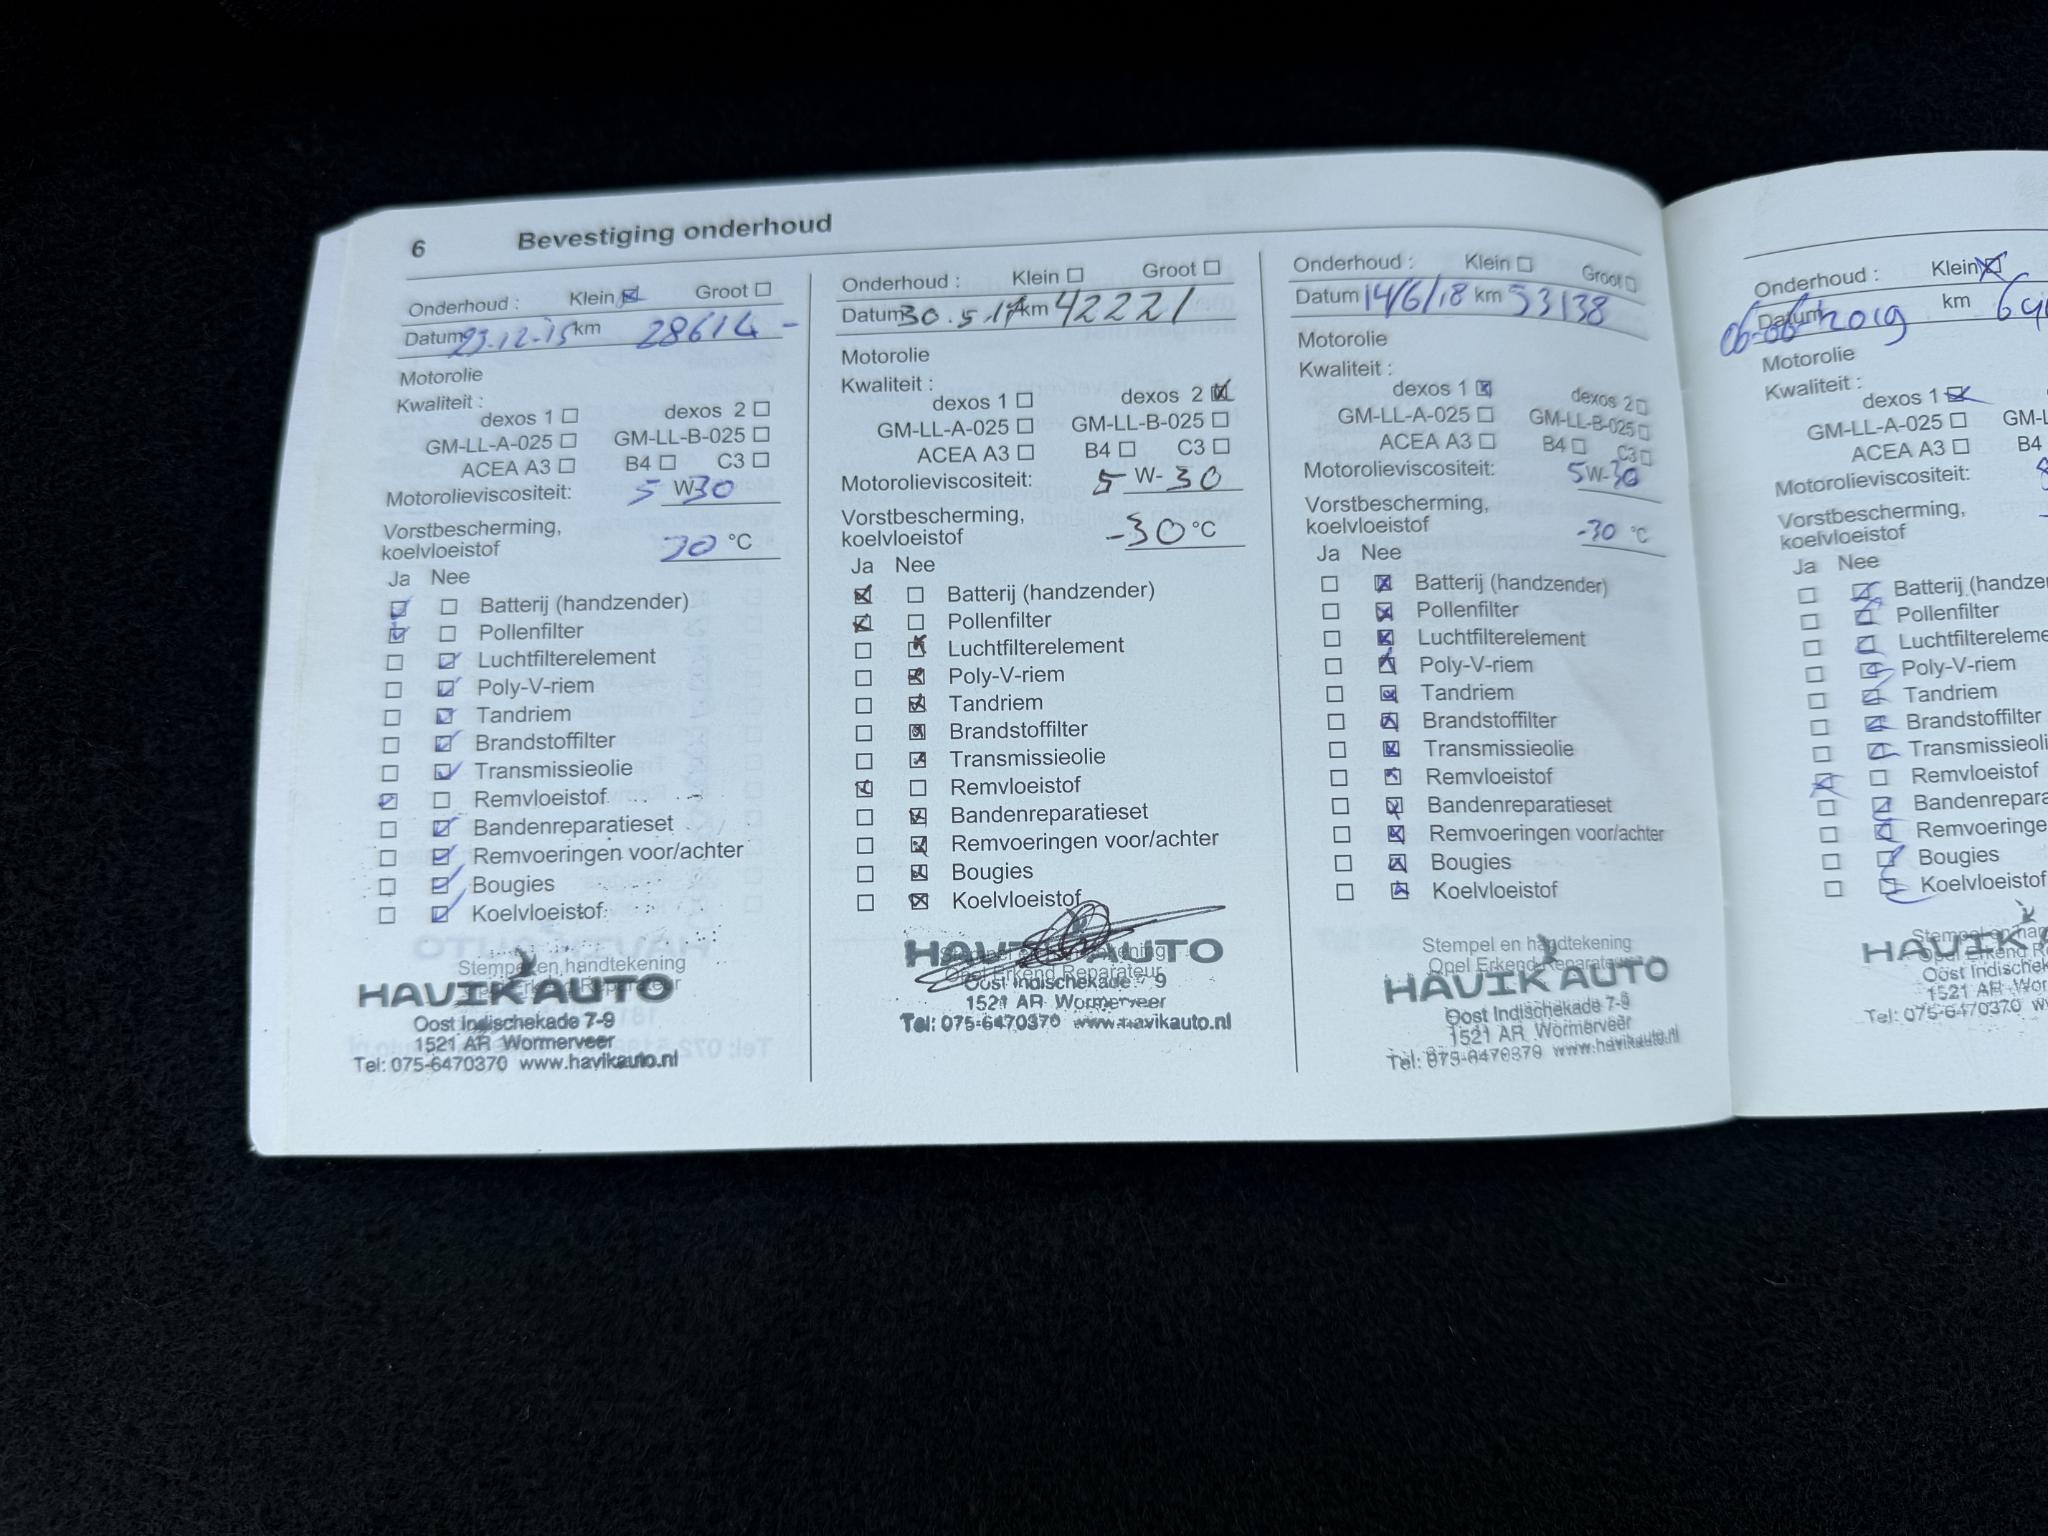 6 Bevestiging onderhoud
Onderhoud : Klein ☒ Groot ☐
Datum 23-12-15 km 28614 -
Motorolie
Kwaliteit :
dexos 1 ☐ dexos 2 ☐
GM-LL-A-025 ☐ GM-LL-B-025 ☐
ACEA A3 ☐ B4 ☐ C3 ☐
Motorolieviscositeit: 5 W 30
Vorstbescherming,
koelvloeistof 30 °C
Ja Nee
☑ ☐ Batterij (handzender)
☑ ☐ Pollenfilter
☐ ☑ Luchtfilterelement
☐ ☑ Poly-V-riem
☐ ☑ Tandriem
☐ ☑ Brandstoffilter
☐ ☑ Transmissieolie
☑ ☐ Remvloeistof
☐ ☑ Bandenreparatieset
☐ ☑ Remvoeringen voor/achter
☐ ☑ Bougies
☐ ☑ Koelvloeistof
Stempel en handtekening
HAVIK AUTO
Oost Indischekade 7-9
1521 AR Wormerveer
Tel: 075-6470370 www.havikauto.nl
Onderhoud : Klein ☐ Groot ☐
Datum 30.5.17 km 42221
Motorolie
Kwaliteit :
dexos 1 ☐ dexos 2 ☒
GM-LL-A-025 ☐ GM-LL-B-025 ☐
ACEA A3 ☐ B4 ☐ C3 ☐
Motorolieviscositeit: 5 W- 30
Vorstbescherming,
koelvloeistof -30 °C
Ja Nee
☒ ☐ Batterij (handzender)
☒ ☐ Pollenfilter
☐ ☒ Luchtfilterelement
☐ ☒ Poly-V-riem
☐ ☒ Tandriem
☐ ☒ Brandstoffilter
☐ ☒ Transmissieolie
☒ ☐ Remvloeistof
☐ ☒ Bandenreparatieset
☐ ☒ Remvoeringen voor/achter
☐ ☒ Bougies
☐ ☒ Koelvloeistof
HAVIK AUTO
Opel Erkend Reparateur
Oost Indischekade 7 9
1521 AR Wormerveer
Tel: 075-6470370 www.havikauto.nl
Onderhoud : Klein ☐ Groot ☐
Datum 14/6/18 km 53138
Motorolie
Kwaliteit :
dexos 1 ☒ dexos 2 ☐
GM-LL-A-025 ☐ GM-LL-B-025 ☐
ACEA A3 ☐ B4 ☐ C3 ☐
Motorolieviscositeit: 5 W-30
Vorstbescherming,
koelvloeistof -30 °C
Ja Nee
☐ ☒ Batterij (handzender)
☐ ☒ Pollenfilter
☐ ☒ Luchtfilterelement
☐ ☒ Poly-V-riem
☐ ☒ Tandriem
☐ ☒ Brandstoffilter
☐ ☒ Transmissieolie
☐ ☒ Remvloeistof
☐ ☒ Bandenreparatieset
☐ ☒ Remvoeringen voor/achter
☐ ☒ Bougies
☐ ☒ Koelvloeistof
Stempel en handtekening
Opel Erkend Reparateur
HAVIK AUTO
Oost Indischekade 7-9
1521 AR Wormerveer
Tel: 075-6470370 www.havikauto.nl
Onderhoud : Klein ☒
Datum 06-06-2019 km
Motorolie
Kwaliteit :
dexos 1 ☒
GM-LL-A-025 ☐ GM-L
ACEA A3 ☐ B4
Motorolieviscositeit:
Vorstbescherming,
koelvloeistof
Ja Nee
☐ ☑ Batterij (handze
☐ ☑ Pollenfilter
☐ ☑ Luchtfiltereleme
☐ ☑ Poly-V-riem
☐ ☑ Tandriem
☐ ☑ Brandstoffilter
☐ ☑ Transmissieoli
☒ ☐ Remvloeistof
☐ ☑ Bandenrepara
☐ ☑ Remvoeringe
☐ ☑ Bougies
☐ ☑ Koelvloeistof
HAVIK
Oost Indischek
1521 AR Wor
Tel: 075-6470370